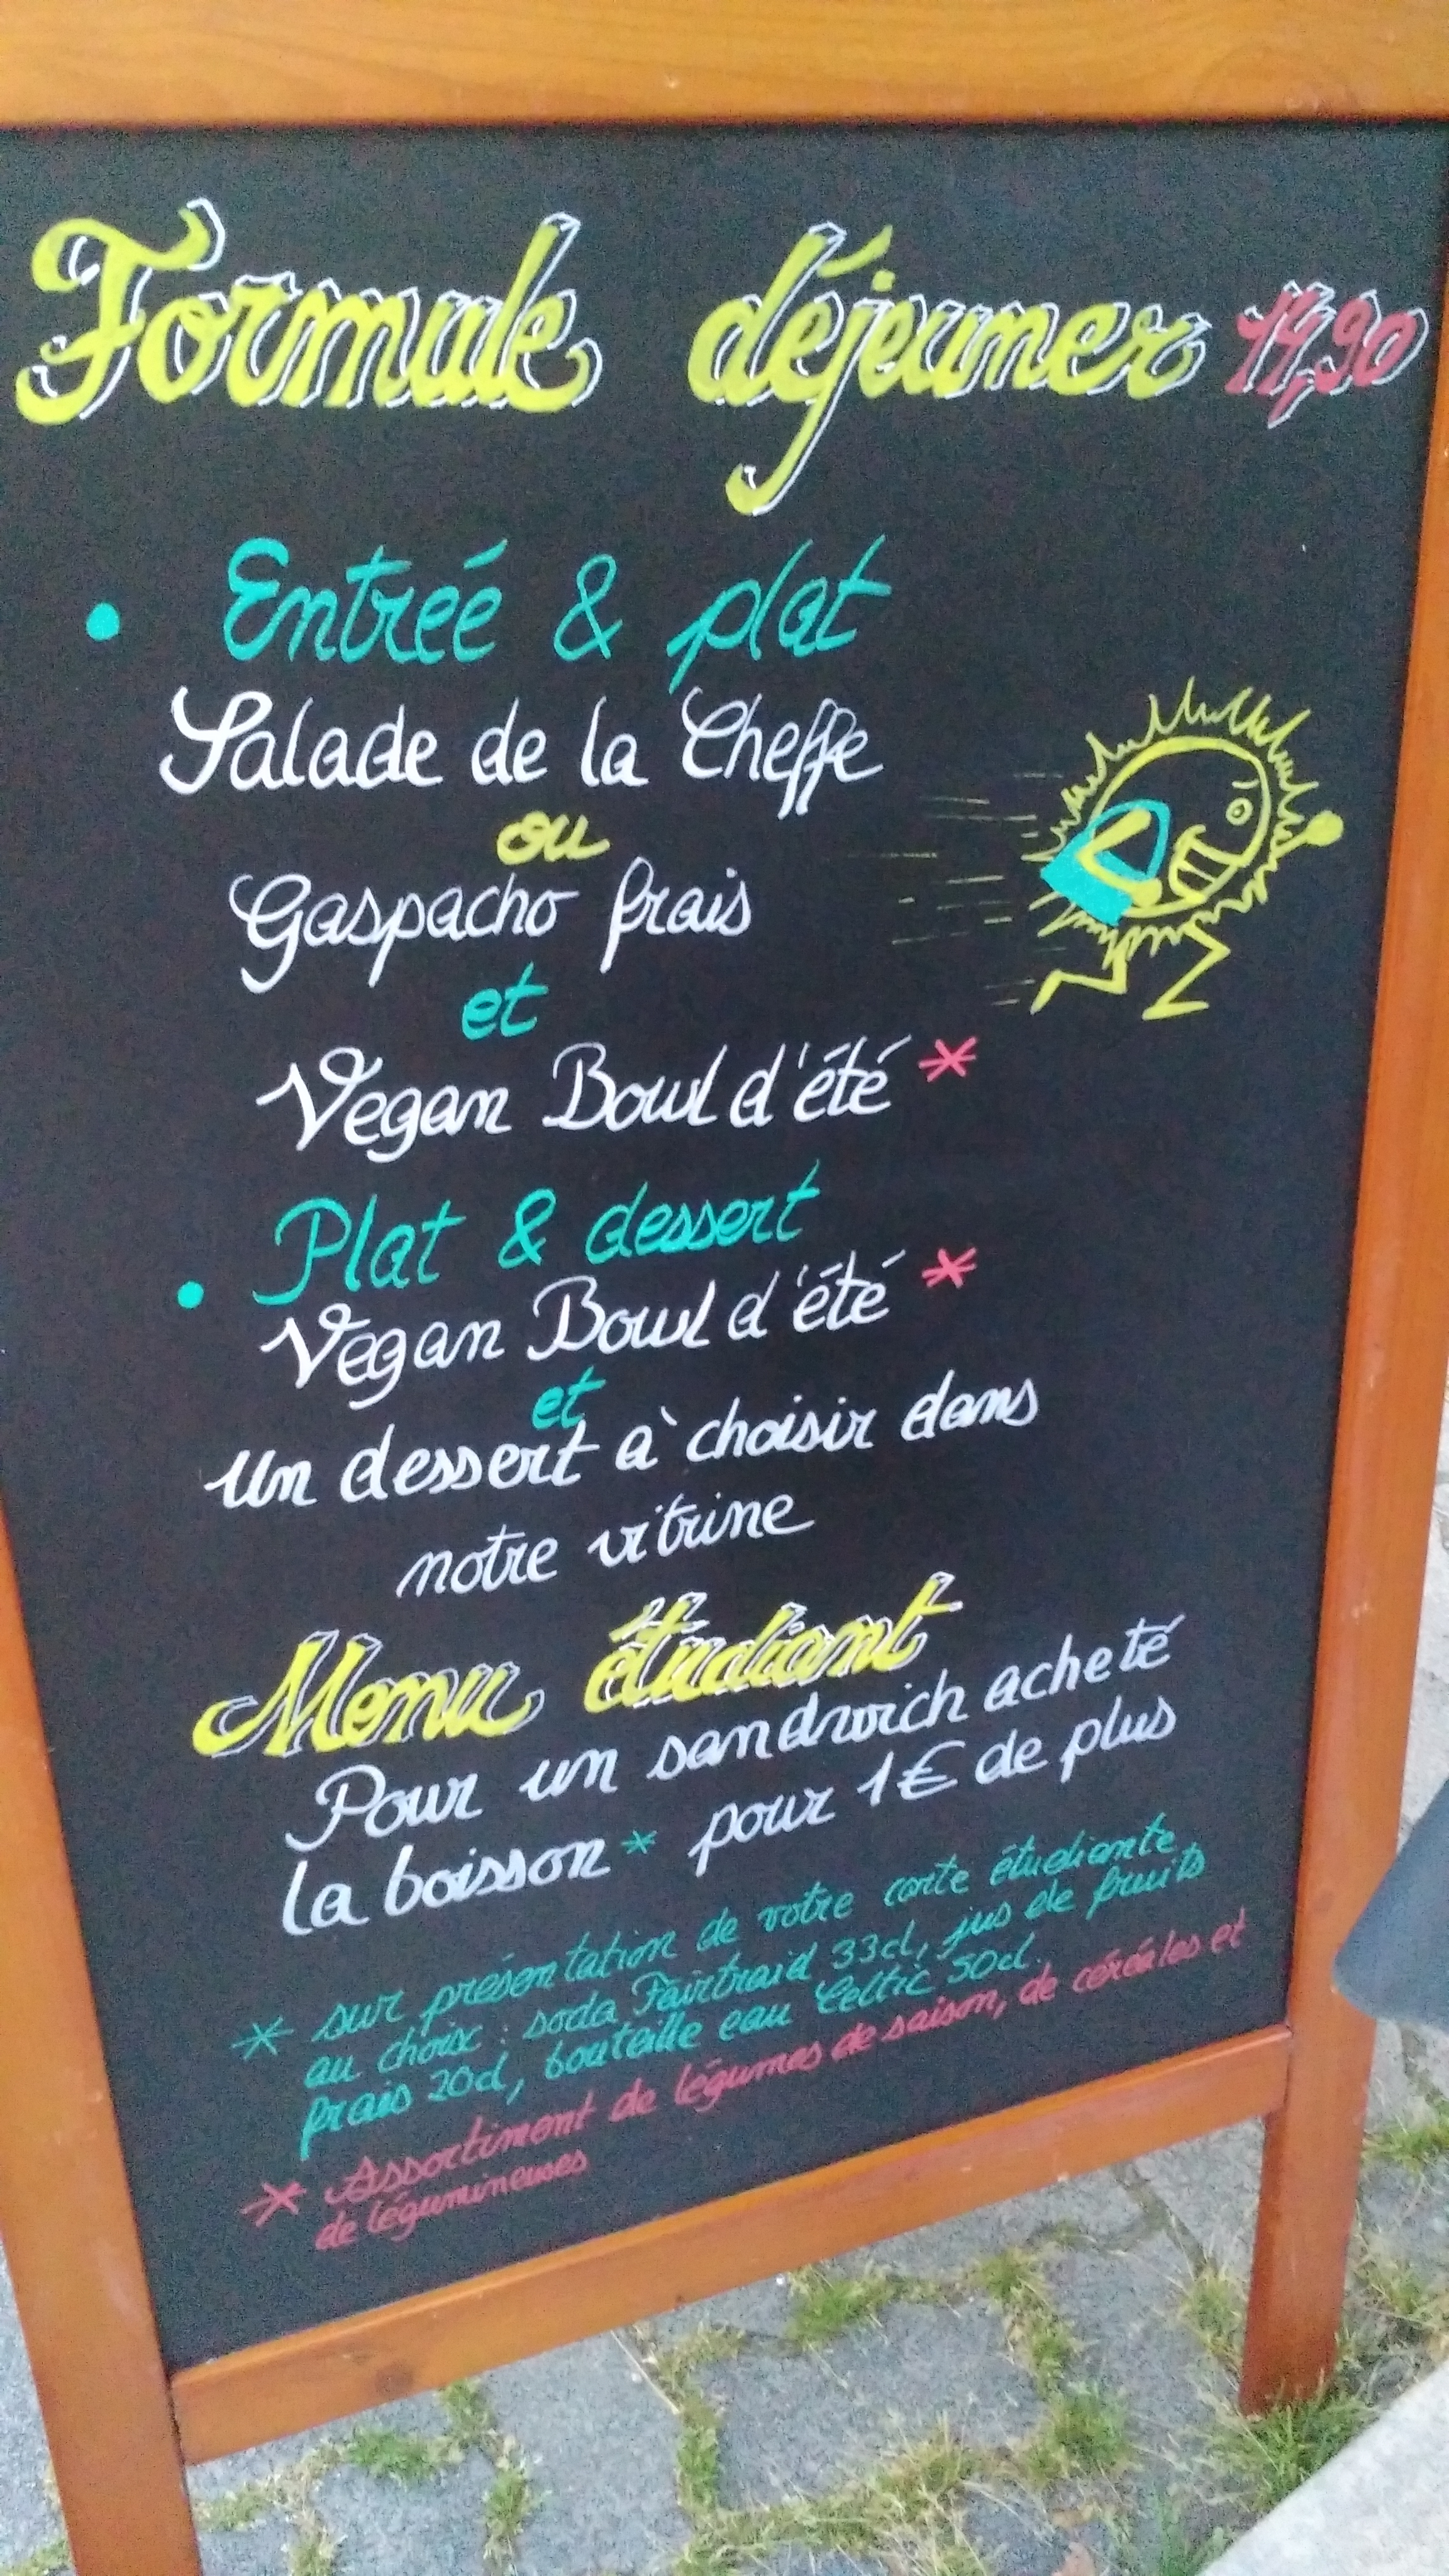 Formule déjeuner 14,90
• Entrée & plat
Salade de la Cheffe
ou
Gaspacho frais
et
Vegan Bowl d'été *
• Plat & dessert
Vegan Bowl d'été *
et
Un dessert à choisir dans
notre vitrine
Menu étudiant
Pour un sandwich acheté
la boisson * pour 1€ de plus
* sur présentation de votre carte étudiante,
au choix : soda Fairtraid 33cl, jus de fruits
frais 20cl, bouteille eau Celtic 50cl.
* Assortiment de légumes de saison, de céréales et
de légumineuses